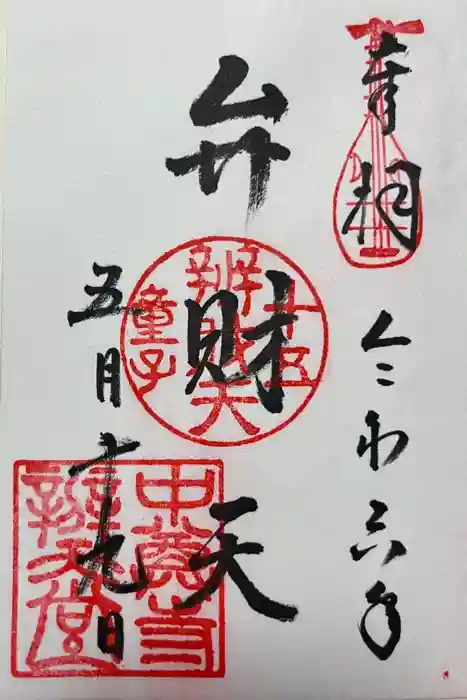 奉拝
令和六年
弁財天
五月十九日
十五
辨財天
童子
中尊寺
辨天堂